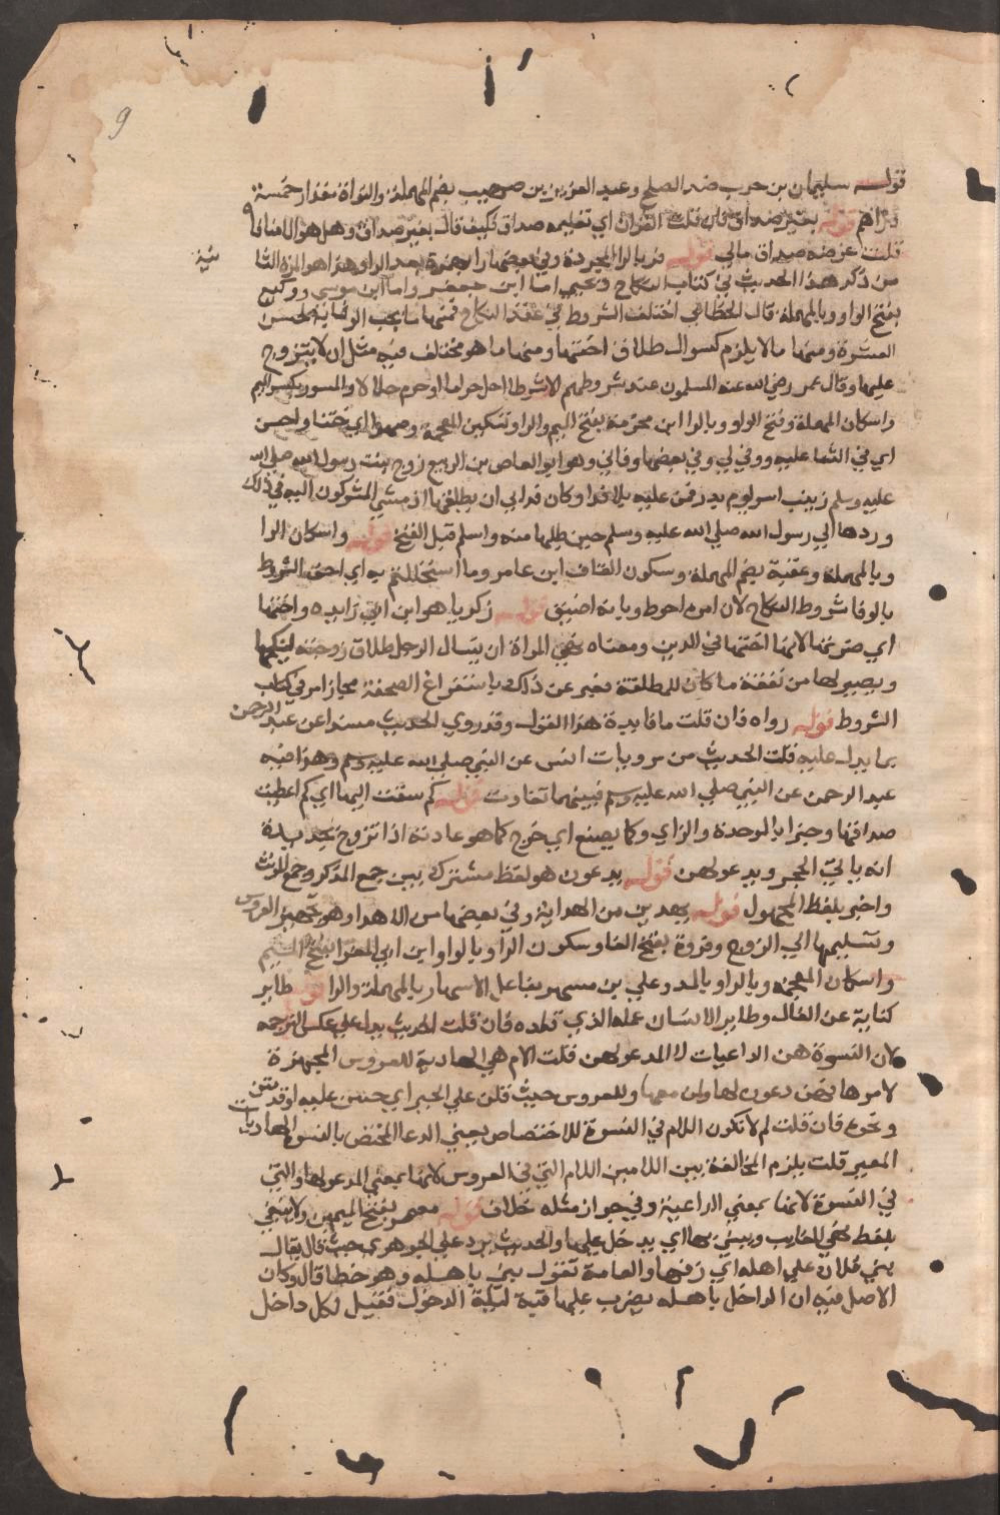 9
قوله سليمان بن حرب ضد الصلح وعبد العزيز بن صهيب بضم المهملة والنواة مقدار خمسة
دراهم قوله بغير صداق فان قلت القرآن اي تعليمه صداق فكيف قال بغير صداق وهل هو الا منافاة
قلت غرضه صداق مالي قوله
من ذكر هذا الحديث في كتاب النكاح ويحيى اما ابن جعفر واما ابن موسى ووكيع
بفتح الواو وبالمهملة قال الخطابي اختلف الشروط في عقد النكاح فمنها ما يجب الوفا به كحسن
العشرة ومنها ما لا يلزم كسوال طلاق اختها ومنها ما هو مختلف فيه مثل ان لا يتزوج
عليها وقال عمر رضي الله عنه المسلمون عند شروطهم الا شرطا احل حراما او حرم حلالا والمسور بكسر الميم
واسكان المهملة وفتح الواو وبالرا ابن مخرمة بفتح الميم والرا وتسكين المعجمة وصهرا اي ختنا واحسن
اي في الثنا عليه ووفى لي وفي بعضها وفاني وهو ابو العاص بن الربيع زوج بنت رسول الله صلى الله
عليه وسلم زينب اسر يوم بدر فمن عليه بلا فدا وكان قد ابى ان يطلقها اذ مشى المشركون اليه في ذلك
وردها الى رسول الله صلى الله عليه وسلم حين طلبها منه واسلم قبل الفتح قوله واسكان الرا
وبالمهملة وعقبة بضم المهملة وسكون القاف ابن عامر وما استحللتم به اي احق الشروط
بالوفا شروط النكاح لان امره احوط وبابه اضيق قوله زكريا هو ابن ابي زايدة واختها
اي ضرتها لانها اختها في الدين ومعناه نهي المراة ان يسال الرجل طلاق زوجته لينكحها
ويصير لها من نفقته ما كان للمطلقة فعبر عن ذلك باستفراغ الصحفة مجازا مر في كتاب
الشروط قوله رواه فان قلت ما فايدة هذا القول وقد روي الحديث مسندا عن عبد الرحمن
بما يدل عليه قلت الحديث من مرويات انس عن النبي صلى الله عليه وسلم وهو قصة
عبد الرحمن عن النبي صلى الله عليه وسلم فبينهما تفاوت قوله كم سقت اليها اي كم اعطيت
صداقها وخبزا بالموحدة والزاي وكما يصنع اي خرج كما هو عادته اذا تزوج بجديدة
انه ياتي الحجر ويدعو لهن قوله يدعون هو لفظ مشترك بين جمع المذكر وجمع المونث
واخبر بلفظ المجهول قوله يهدين من الهداية وفي بعضها من الاهدا وهو تجهيز العروس
وتسليمها الى الزوج وفروة بفتح الفا وسكون الرا وبالواو ابن ابي المغرا بفتح الميم
واسكان المعجمة وبالرا وبالمد وعلي بن مسهر بفاعل الاسهار بالمهملة والرا قوله طاير
كناية عن الفال وطاير الانسان عمله الذي قلده فان قلت الحديث يدل على عكس الترجمة
لان النسوة هن الداعيات لا المدعو لهن قلت الام هي الهادية للعروس المجهزة
لامرها فهن دعون لها ولمن معها وللعروس حيث قلن على الخير اي جئتن عليه او قدمتن
ونحوه فان قلت لم لا تكون اللام في النسوة للاختصاص يعني الدعا المختص بالنسوة الهاديات
المعير قلت يلزم المخالفة بين اللامين اللام التي في العروس لانها بمعنى المدعو لها والتي
في النسوة لانها بمعنى الداعية وفي جواز مثله خلاف قوله معمر بفتح الميمين ولا يتبعني
بلفظ نهي الغايب ويبني بها اي يدخل عليها والحديث يرد على الجوهري حيث قال يقال
بنى فلان على اهله اي زفها والعامة تقول بنى باهله وهو خطا قال وكان
الاصل فيه ان الداخل باهله يضرب عليها قبة ليلة الدخول فقيل لكل داخل